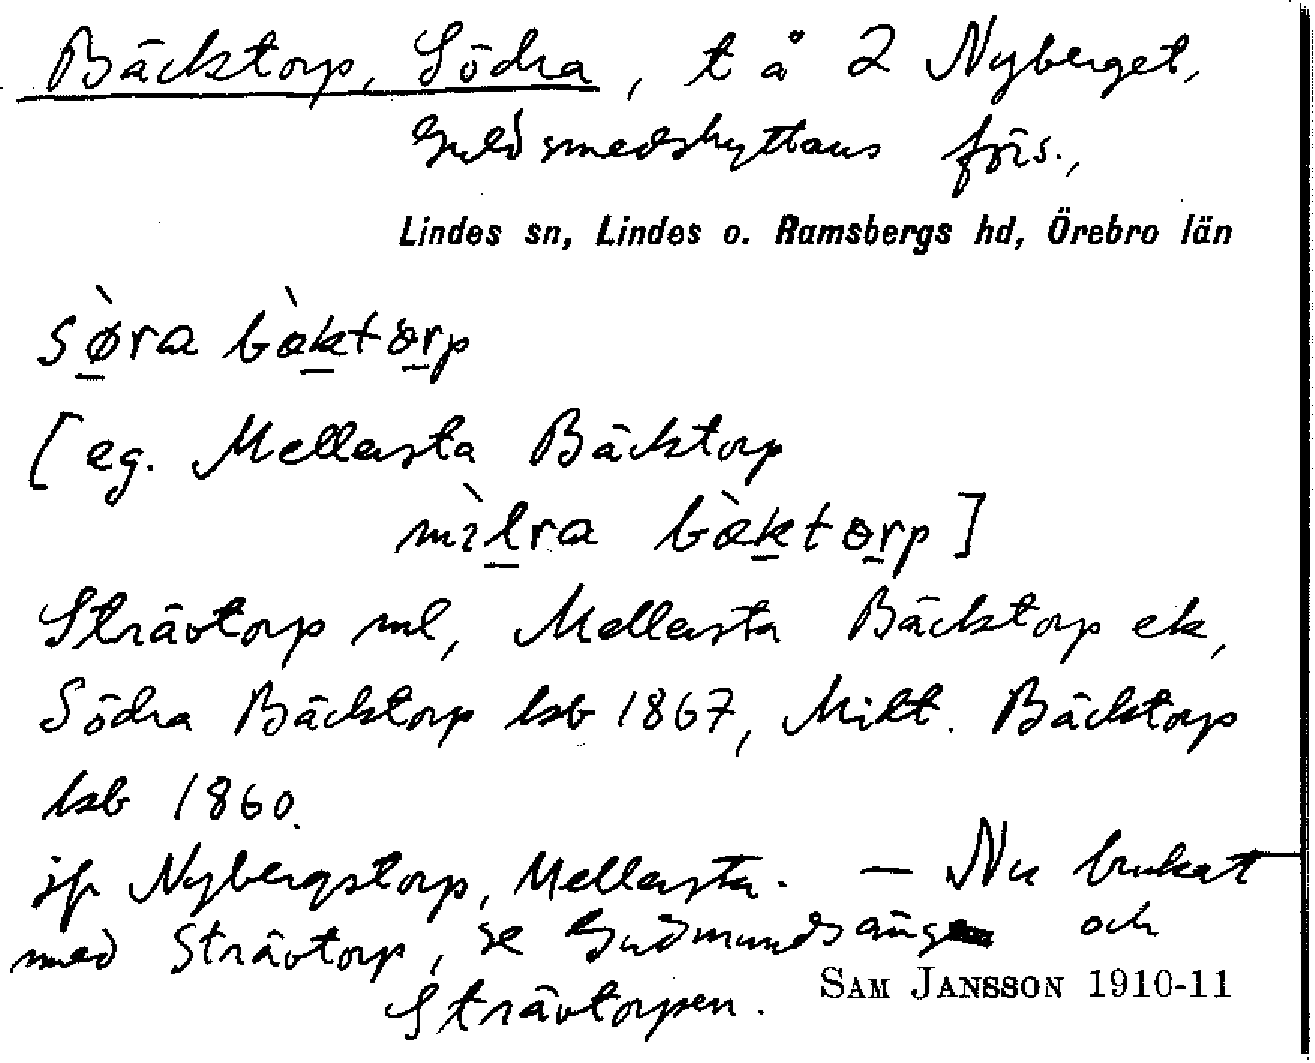 Bäcktorp, Södra, t å 2 Nyberget,
Guldsmedshyttans förs.,
Lindes sn, Lindes o. Ramsbergs hd, Örebro län
sø̀ra bæ̀ktørp
[ äg. Mellersta Bäcktorp
mìlra bæ̀ktørp ]
Strävtorp ml, Mellersta Bäcktorp ek,
Södra Bäcktorp lsb 1867, Milt. Bäcktorp
lsb 1860.
jfr Nybergstorp, Mellersta. — Nu brukat
med Strävtorp, se Gudmundsäng och
Strävtorpen.
SAM JANSSON 1910-11